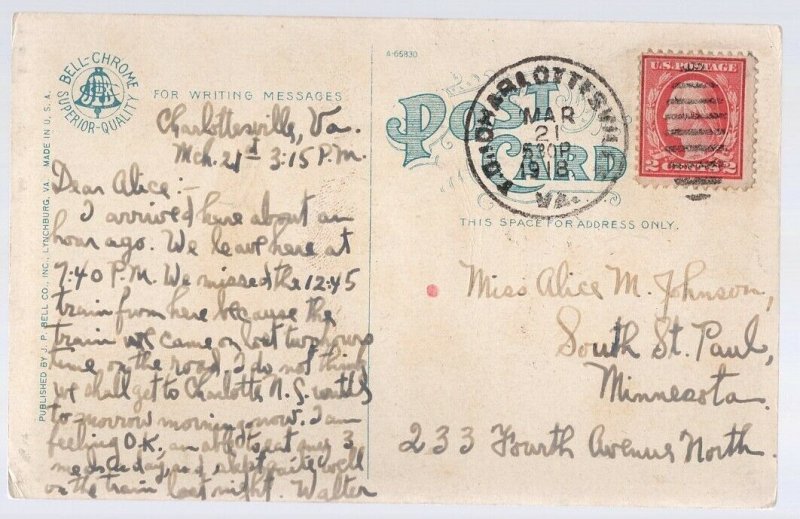 BELL-CHROME
SUPERIOR-QUALITY
PUBLISHED BY J. P. BELL CO., INC., LYNCHBURG, VA. MADE IN U.S.A.
FOR WRITING MESSAGES
Charlottesville, Va.
Mch. 21st 3:15 P.M.
Dear Alice:-
I arrived here about an
hour ago. We leave here at
7:40 P.M. We missed the 12:45
train from here because the
train we came on lost two hours
time on the road. I do not think
we shall get to Charlotte N.C. until
to-morrow morning now. I am
feeling O.K., am able to eat my 3
meals a day, and slept quite well
on the train last night. Walter
A-65830
POST
CARD
CHARLOTTESVILLE
MAR
21
530P
1918
VA.
U.S. POSTAGE
2 CENTS 2
THIS SPACE FOR ADDRESS ONLY.
Miss Alice M. Johnson,
South St. Paul,
Minnesota.
233 Fourth Avenue North.